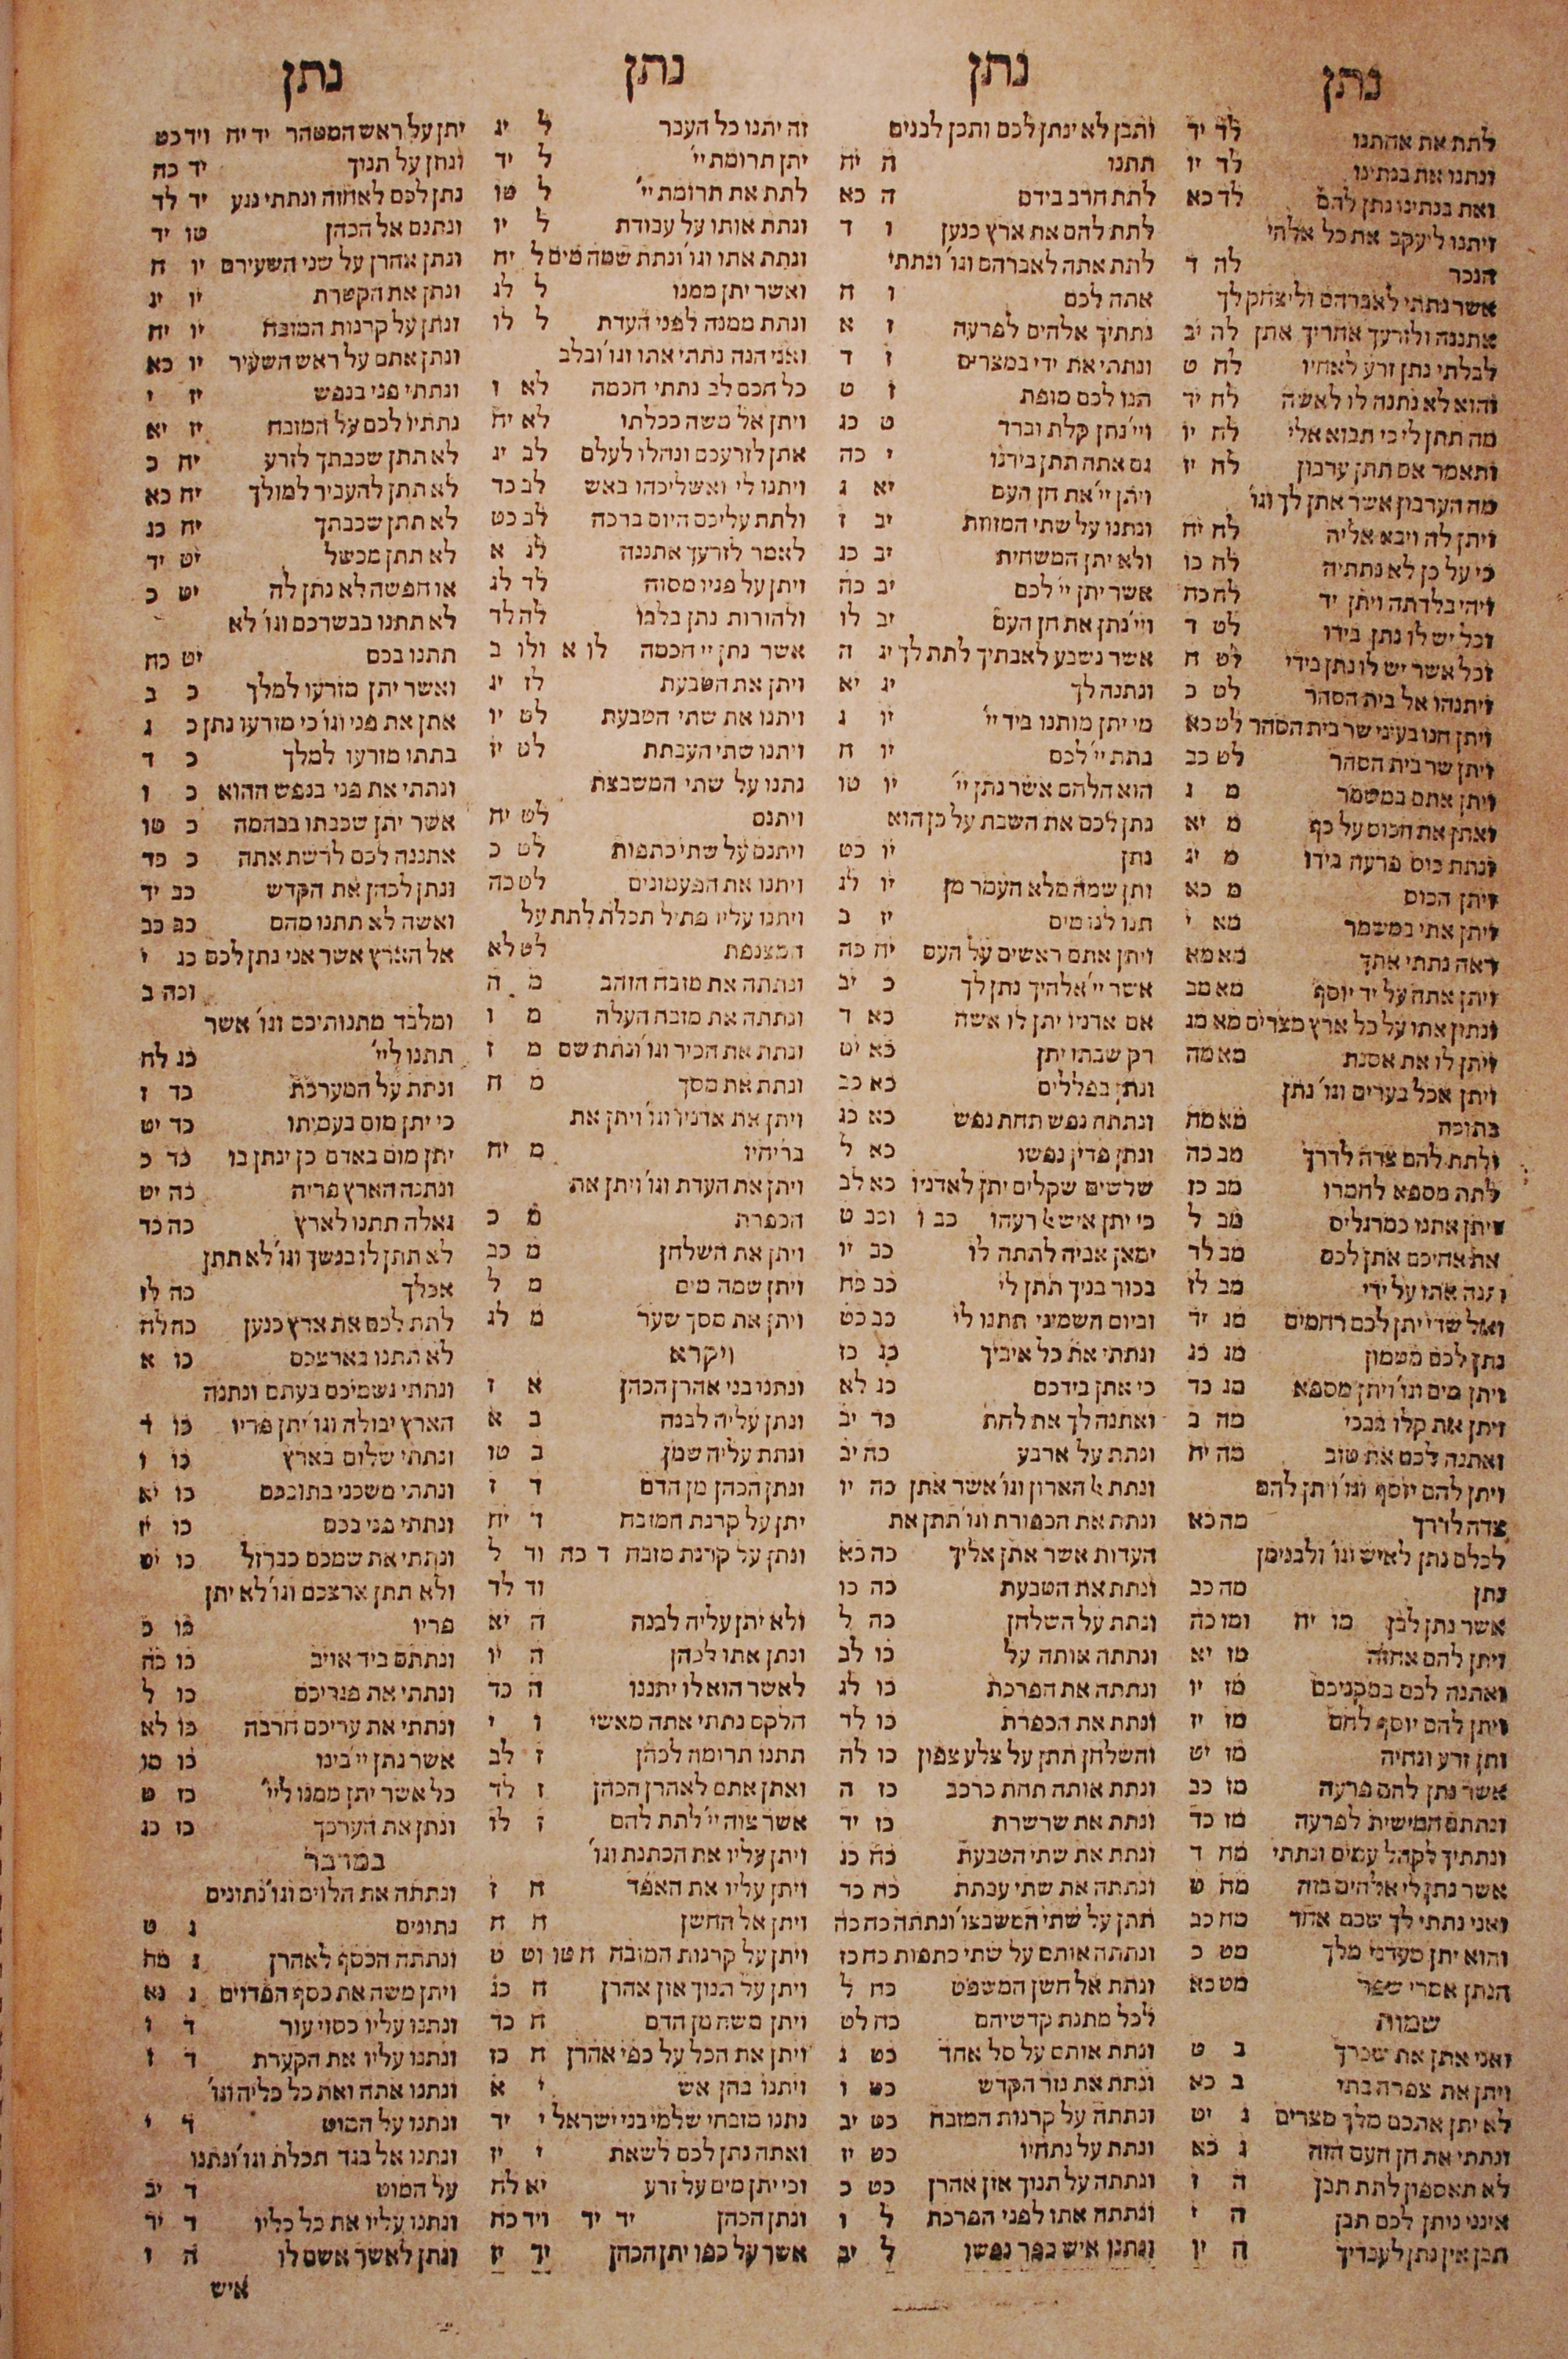 נתן
לתת את אחתנו לד יד
ונתנו את בנתינו לד יו
ואת בנתינו נתן להם לד כא
ויתנו ליעקב את כל אלהי
הנכר לה ד
אשר נתתי לאברהם וליצחק לך
אתננה ולזרעך אחריך אתן לה יב
לבלתי נתן זרע לאחיו לח ט
והוא לא נתנה לו לאשה לח יד
מה תתן לי כי תבוא אלי לח יו
ותאמר אם תתן ערבון לח יז
מה הערבון אשר אתן לך וגו׳
ויתן לה ויבא אליה לח יח
כי על כן לא נתתיה לח כו
ויהי בלדתה ויתן יד לח כח
וכל יש לו נתן בידו לט ד
וכל אשר יש לו נתן בידי לט ח
ויתנהו אל בית הסהר לט כ
ויתן חנו בעיני שר בית הסהר לט כא
ויתן שר בית הסהר לט כב
ויתן אתם במשמר מ ג
ואתן את הכוס על כף מ יא
ונתת כוס פרעה בידו מ יג
ויתן הכוס מ כא
ויתן אתי במשמר מא י
ראה נתתי אתך מא מא
ויתן אתה על יד יוסף מא מב
ונתון אתו על כל ארץ מצרים מא מג
ויתן לו את אסנת מא מה
ויתן אכל בערים וגו׳ נתן
בתוכה מא מח
ולתת להם צדה לדרך מב כה
לתת מספא לחמרו מב כז
ויתן אתנו כמרגלים מב ל
את אחיכם אתן לכם מב לד
תנה אתו על ידי מב לז
ואל שדי יתן לכם רחמים מג יד
נתן לכם מטמון מג כג
ויתן מים וגו׳ ויתן מספא מג כד
ויתן את קלו בבכי מה ב
ואתנה לכם את טוב מה יח
ויתן להם יוסף וגו׳ ויתן להם
צדה לדרך מה כא
לכלם נתן לאיש וגו׳ ולבנימן
נתן מה כב
אשר נתן לבן מו יח ומו כה
ויתן להם אחזה מז יא
ואתנה לכם במקניכם מז יו
ויתן להם יוסף לחם מז יז
ותן זרע ונחיה מז יט
אשר נתן להם פרעה מז כב
ונתתם חמישית לפרעה מז כד
ונתתיך לקהל עמים ונתתי מח ד
אשר נתן לי אלהים בזה מח ט
ואני נתתי לך שכם אחד מח כב
והוא יתן מעדני מלך מט כ
הנתן אמרי שפר מט כא
שמות
ואני אתן את שכרך ב ט
ויתן את צפרה בתו ב כא
לא יתן אתכם מלך מצרים ג יט
ונתתי את חן העם הזה ג כא
לא תאספון לתת תבן ה ז
אינני נותן לכם תבן ה י
תבן אין נתן לעבדיך ה יו
נתן
ותבן לא ינתן לכם ותכן לבנים
תתנו ה יח
לתת חרב בידם ה כא
לתת להם את ארץ כנען ו ד
לתת אתה לאברהם וגו׳ ונתתי
אתה לכם ו ח
נתתיך אלהים לפרעה ז א
ונתתי את ידי במצרים ז ד
תנו לכם מופת ז ט
ויי׳ נתן קלת וברד ט כג
גם אתה תתן בידנו י כה
ויתן יי׳ את חן העם יא ג
ונתנו על שתי המזוזת יב ז
ולא יתן המשחית יב כג
אשר יתן יי׳ לכם יב כה
ויי׳ נתן את חן העם יב לו
אשר נשבע לאבתיך לתת לך יג ה
ונתנה לך יג יא
מי יתן מותנו ביד יי׳ יו ג
בתת יי׳ לכם יו ח
הוא הלחם אשר נתן יי׳ יו טו
נתן לכם את השבת על כן הוא
נתן יו כט
ותן שמה מלא העמר מן יו לג
תנו לנו מים יז ב
ויתן אתם ראשים על העם יח כה
אשר יי׳ אלהיך נתן לך כ יב
אם אדניו יתן לו אשה כא ד
רק שבתו יתן כא יט
ונתן בפללים כא כב
ונתתה נפש תחת נפש כא כג
ונתן פדין נפשו כא ל
שלשים שקלים יתן לאדניו כא לב
כי יתן איש אל רעהו כב ו וכב ט
ימאן אביה לתתה לו כב יו
בכור בניך תתן לי כב כח
וביום השמיני תתנו לי כב כט
ונתתי את כל איביך כג כז
כי אתן בידכם כג לא
ואתנה לך את לחת כד יב
ונתת על ארבע כה יב
ונתת אל הארון וגו׳ אשר אתן כה יו
ונתת את הכפורת וגו׳ תתן את
העדות אשר אתן אליך כה כא
ונתת את הטבעת כה כו
ונתת על השלחן כה ל
ונתתה אותה על כו לב
ונתתה את הפרכת כו לג
ונתת את הכפרת כו לד
והשלחן תתן על צלע צפון כו לה
ונתת אותה תחת כרכב כז ה
ונתת את שרשרת כח יד
ונתת את שתי הטבעת כח כג
ונתתה את שתי עבתת כח כד
תתן על שתי המשבצו׳ ונתתה כח כה
ונתתה אותם על שתי כתפות כח כז
ונתת אל חשן המשפט כח ל
לכל מתנת קדשיהם כח לט
ונתת אותם על סל אחד כט ג
ונתת את נזר הקדש כט ו
ונתתה על קרנות המזבח כט יב
ונתת על נתחיו כט יז
ונתתה על תנוך אזן אהרן כט כ
ונתתה אתו לפני הפרכת ל ו
ונתנו איש כפר נפשו ל יב
נתן
זה יתנו כל העבר ל יג
יתן תרומת יי׳ ל יד
לתת את תרומת יי׳ ל טו
ונתת אותו על עבודת ל יו
ונתת אתו וגו׳ ונתת שמה מים ל יח
ואשר יתן ממנו ל לג
ונתת ממנה לפני העדת ל לו
ואני הנה נתתי אתו וגו׳ ובלב
כל חכם לב נתתי חכמה לא ו
ויתן אל משה ככלתו לא יח
אתן לזרעכם ונחלו לעלם לב יג
ויתנו לי ואשליכהו באש לב כד
ולתת עליכם היום ברכה לב כט
לאמר לזרעך אתננה לג א
ויתן על פניו מסוה לד לג
ולהורות נתן בלבו לה לד
אשר נתן יי חכמה לו א ולו ב
ויתן את הטבעת לז יג
ויתנו את שתי הטבעת לט יו
ויתנו שתי העבתת לט יז
נתנו על שתי המשבצת
ויתנם לט יח
ויתנם על שתי כתפות לט כ
ויתנו את הפעמונים לט כה
ויתנו עליו פתיל תכלת לתת על
המצנפת לט לא
ונתתה את מזבח הזהב מ ה
ונתתה את מזבח העלה מ ו
ונתת את הכיר וגו׳ ונתת שם מ ז
ונתת את מסך מ ח
ויתן את אדניו וגו׳ ויתן את
בריחיו מ יח
ויתן את העדת וגו׳ ויתן את
הכפרת מ כ
ויתן את השלחן מ כב
ויתן שמה מים מ ל
ויתן את מסך שער מ לג
ויקרא
ונתנו בני אהרן הכהן א ז
ונתן עליה לבנה ב א
ונתת עליה שמן ב טו
ונתן הכהן מן הדם ד ז
יתן על קרנת המזבח ד יח
ונתן על קרנת מזבח ד כה וד ל
וד לד
ולא יתן עליה לבנה ה יא
ונתן אתו לכהן ה יו
לאשר הוא לו יתננו ה כד
חלקם נתתי אתה מאשי ו י
תתנו תרומה לכהן ז לב
ואתן אתם לאהרן הכהן ז לד
אשר צוה יי׳ לתת להם ז לו
ויתן עליו את הכתנת וגו׳
ויתן עליו את האפד ח ז
ויתן אל החשן ח ח
ויתן על קרנות המזבח ח טו וט ט
ויתן על תנוך אזן אהרן ח כג
ויתן משה מן הדם ח כד
ויתן את הכל על כפי אהרן ח כז
ויתנו בהן אש י א
נתנו מזבחי שלמי בני ישראל י יד
ואתה נתן לכם לשאת י יז
וכי יתן מים על זרע יא לח
ונתן הכהן יד יד ויד כח
אשר על כפו יתן הכהן יד יז
נתן
יתן על ראש המטהר יד יח ויד כט
ונתן על תנוך יד כח
נתן לכם לאחזה ונתתי נגע יד לד
ונתנם אל הכהן טו יד
ונתן אהרן על שני השעירם יו ח
ונתן את הקטרת יו יג
ונתן על קרנות המזבח יו יח
ונתן אתם על ראש השעיר יו כא
ונתתי פני בנפש יז י
נתתיו לכם על המזבח יז יא
לא תתן שכבתך לזרע יח כ
לא תתן להעביר למולך יח כא
לא תתן שכבתך יח כג
לא תתן מכשל יט יד
או חפשה לא נתן לה יט כ
לא תתנו בבשרכם וגו׳ לא
תתנו בכם יט כח
ואשר יתן מזרעו למלך כ ב
אתן את פני וגו׳ כי מזרעו נתן כ ג
בתתו מזרעו למלך כ ד
ונתתי את פני בנפש ההוא כ ו
אשר יתן שכבתו בבהמה כ טו
אתננה לכם לרשת אתה כ כד
ונתן לכהן את הקדש כב יד
ואשה לא תתנו מהם כב כב
אל הארץ אשר אני נתן לכם כג י
וכה ב
ומלבד מתנותיכם וגו׳ אשר
תתנו ליי׳ כג לח
ונתת על המערכת כד ז
כי יתן מום בעמיתו כד יט
יתן מום באדם כן ינתן בו כד כ
ונתנה הארץ פריה כה יט
גאלה תתנו לארץ כה כד
לא תתן לו בנשך וגו׳ לא תתן
אכלך כה לז
לתת לכם את ארץ כנען כה לח
לא תתנו בארצכם כו א
ונתתי גשמיכם בעתם ונתנה
הארץ יבולה וגו׳ יתן פריו כו ד
ונתתי שלום בארץ כו ו
ונתתי משכני בתוככם כו יא
ונתתי פני בכם כו יז
ונתתי את שמכם כברזל כו יט
ולא תתן ארצכם וגו׳ לא יתן
פריו כו כ
ונתתם ביד אויב כו כה
ונתתי את פגריכם כו ל
ונתתי את עריכם חרבה כו לא
אשר נתן יי׳ בינו כו מו
כל אשר יתן ממנו ליי׳ כז ט
ונתן את הערכך כז כג
במדבר
ונתתה את הלוים וגו׳ נתונים
נתונים ג ט
ונתתה הכסף לאהרן ג מח
ויתן משה את כסף הפדוים ג נא
ונתנו עליו כסוי עור ד ו
ונתנו עליו את הקערת ד ז
ונתנו אתה ואת כל כליה וגו׳
ונתנו על המוט ד י
ונתנו אל בגד תכלת וגו׳ ונתנו
על המוט ד יב
ונתנו עליו את כל כליו ד יד
ונתן לאשר אשם לו ה ז
איש